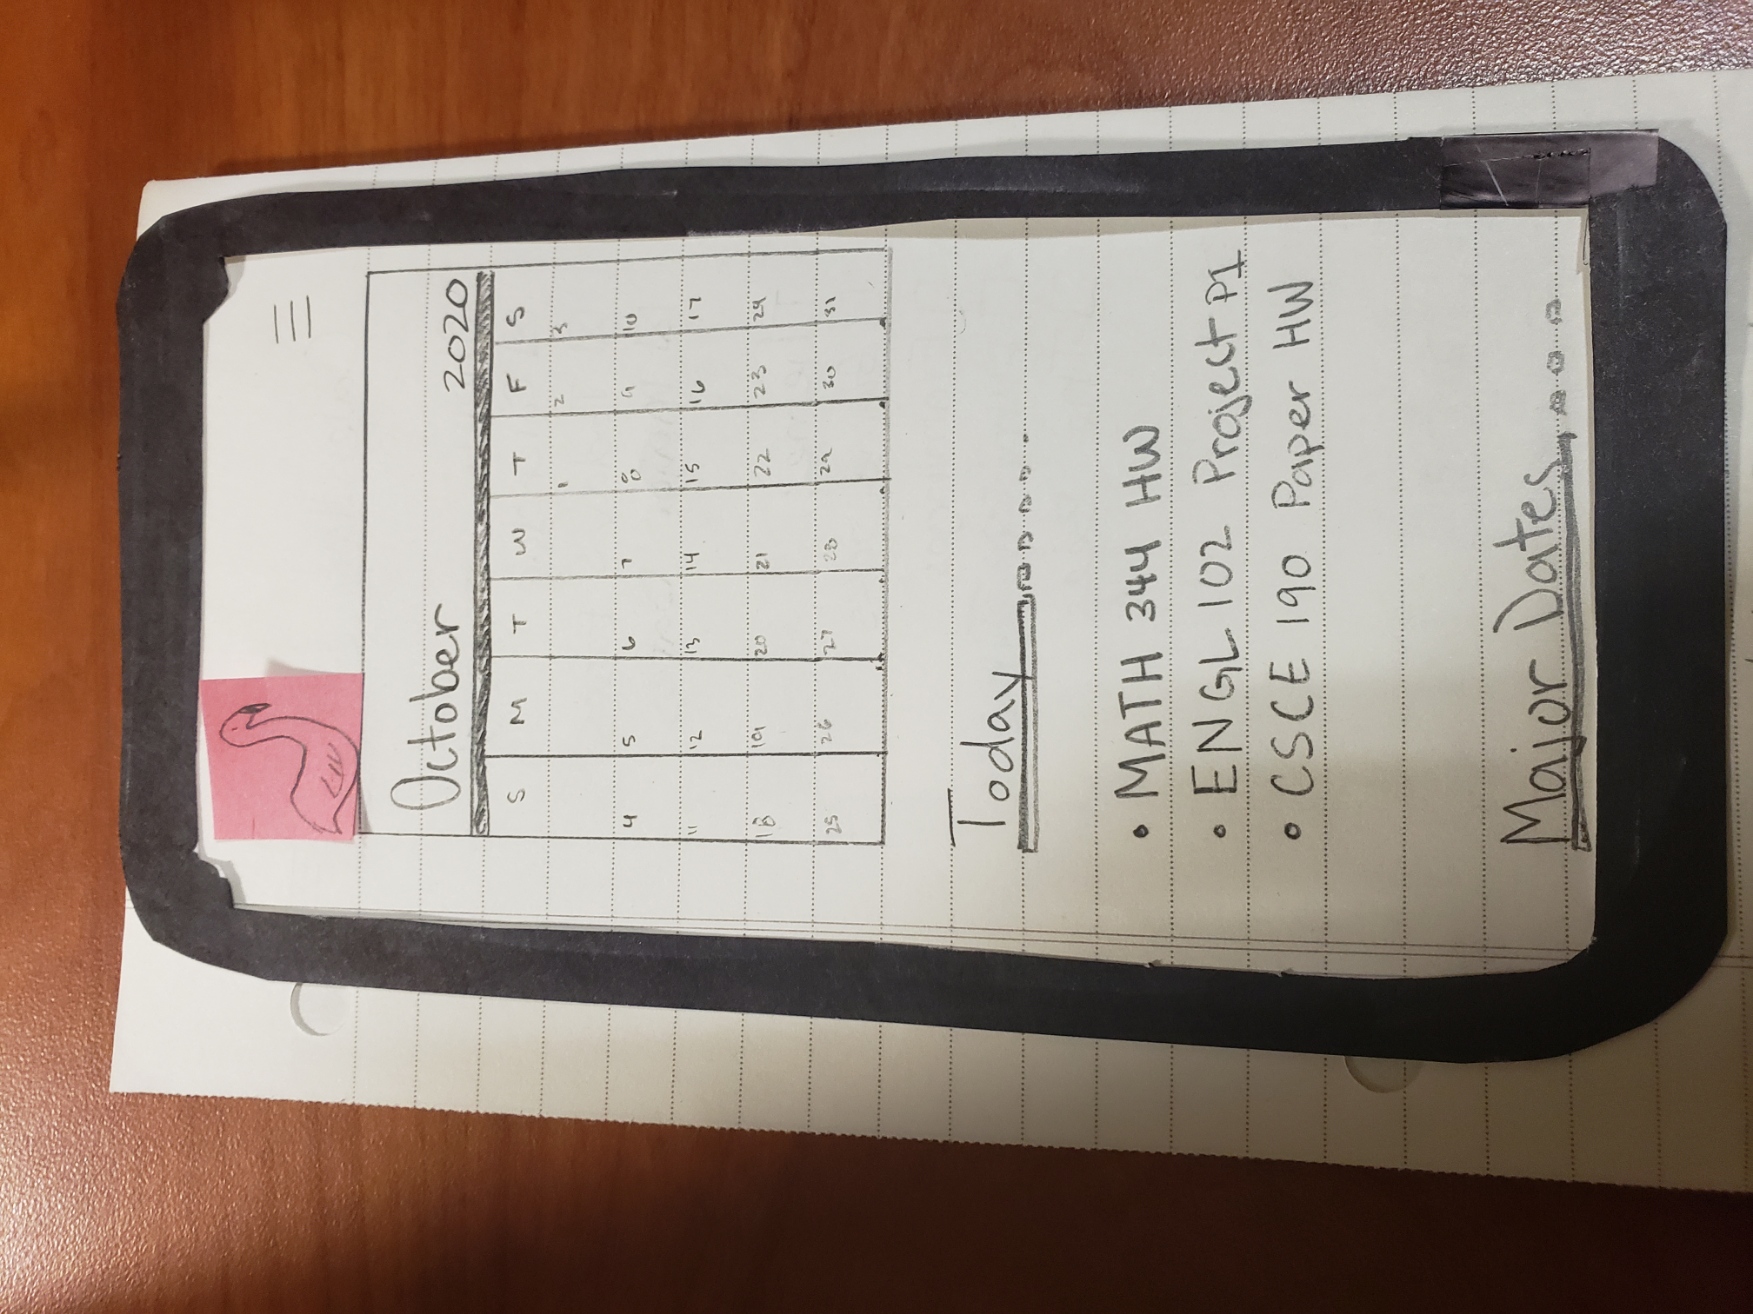 October 2020
S M T W T F S
1 2 3
4 5 6 7 8 9 10
11 12 13 14 15 16 17
18 19 20 21 22 23 24
25 26 27 28 29 30 31
Today
• MATH 344 HW
• ENGL 102 Project P1
• CSCE 190 Paper HW
Major Dates